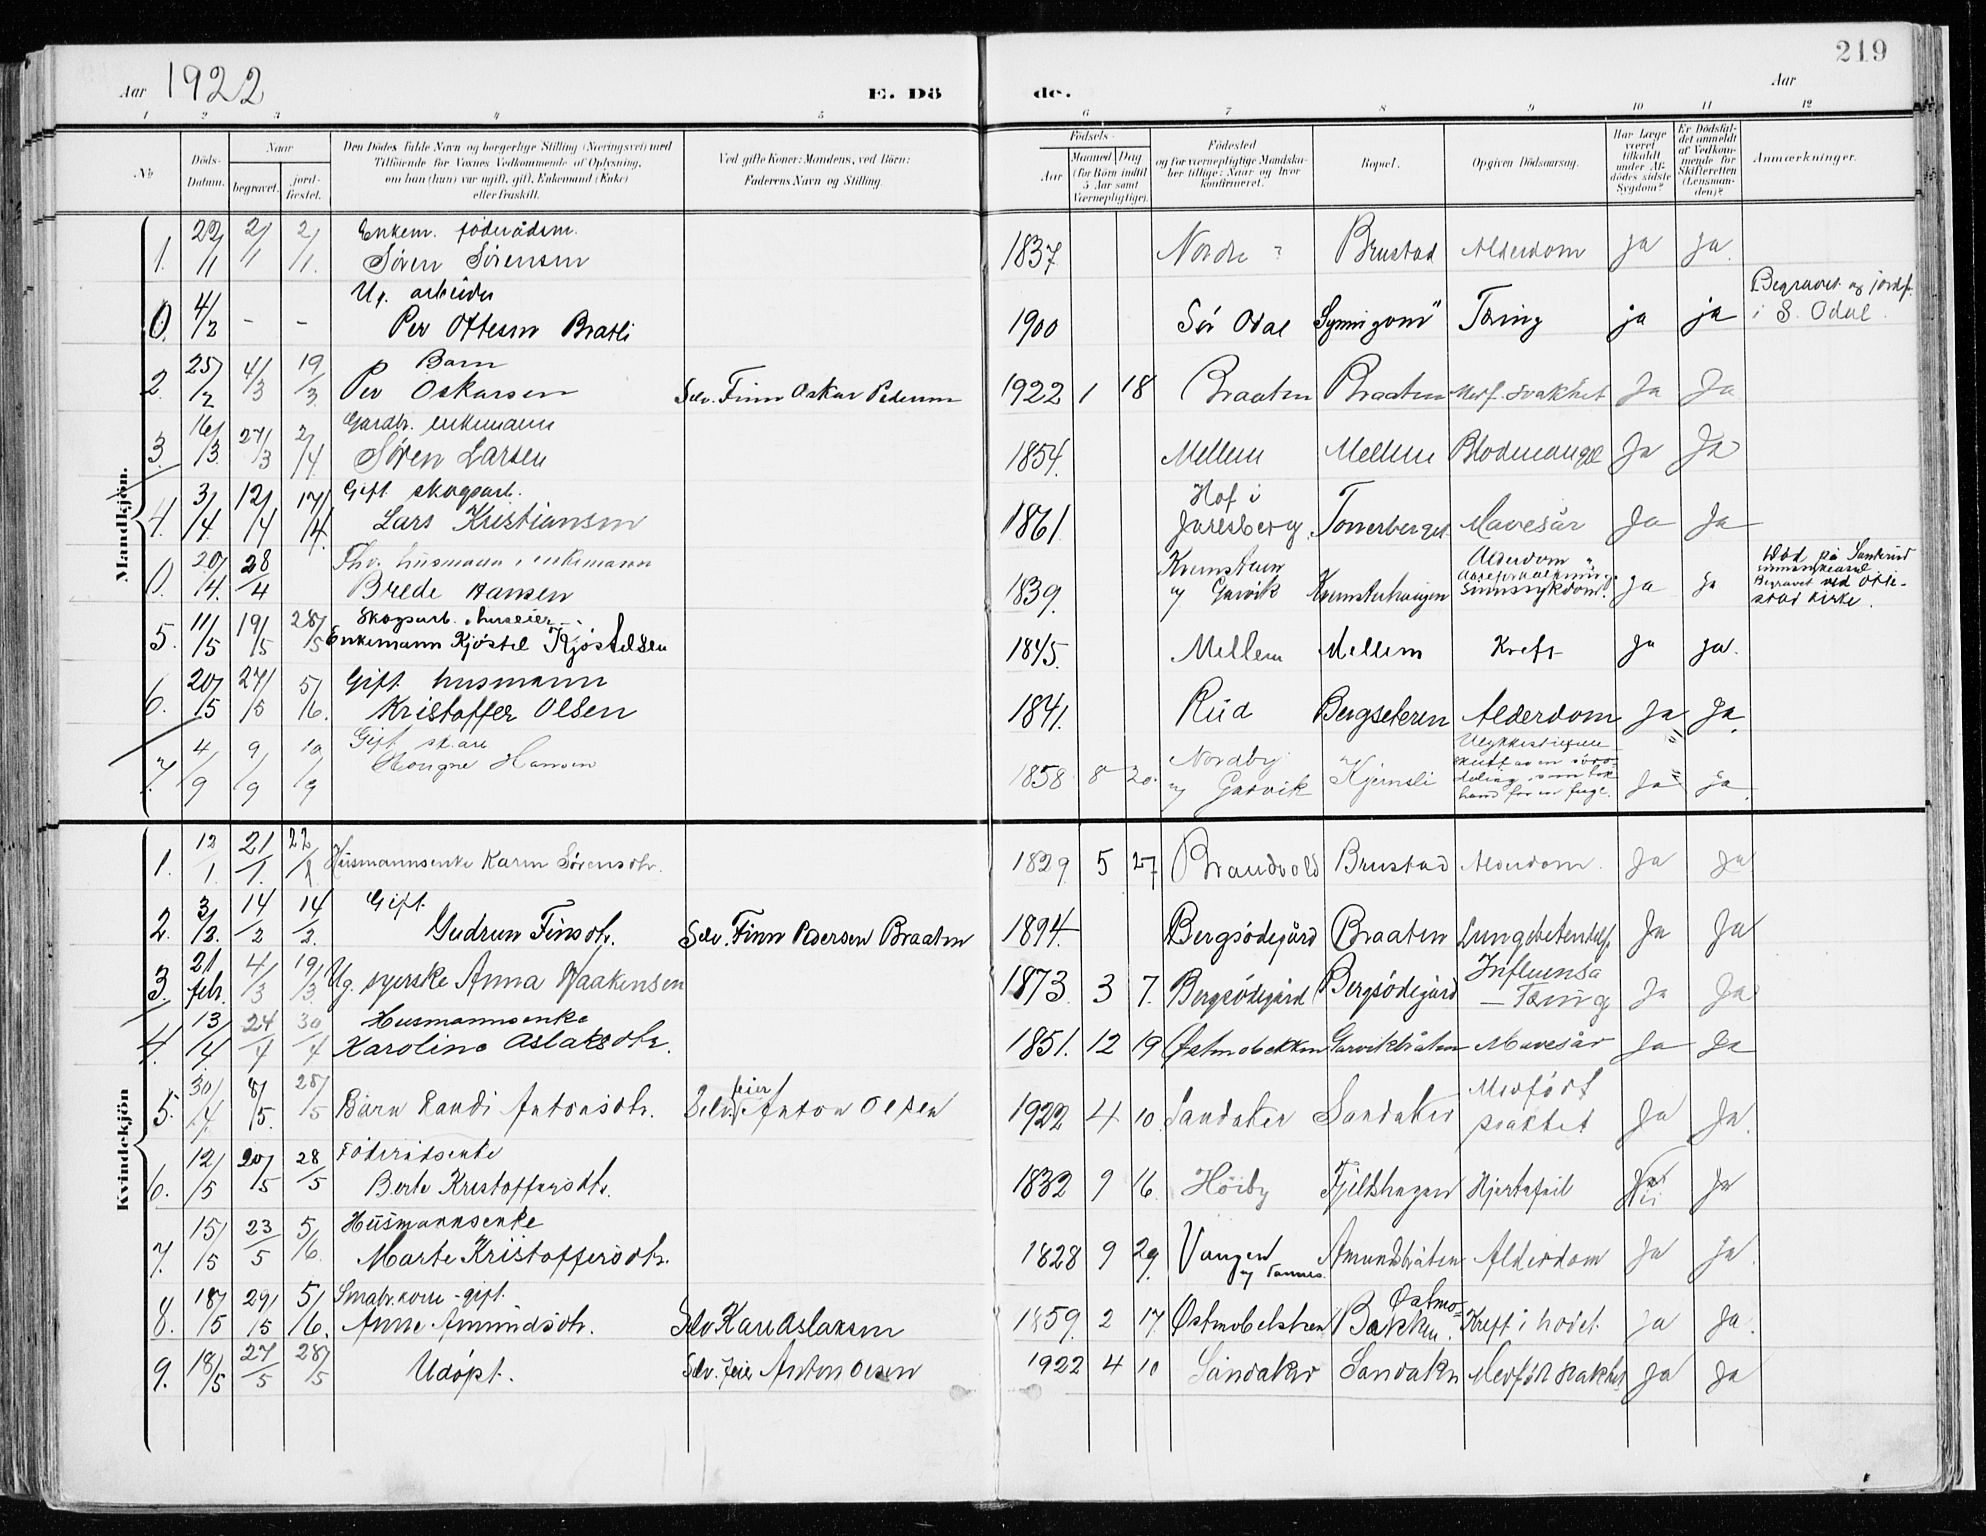 219
Aar 1922 E. Dö de. Aar
1 2 3 4 5 6 7 8 9 10 11 12
No Döds-Datum. Naar begravet. jordfæstet. Den Dödes fulde Navn og borgerlige Stilling (Næringsvei) med Tilföiende for Voxnes Vedkommende af Oplysning, om han (hun) var ugift, gift, Enkemand (Enke) eller fraskilt. Ved gifte Koner: Mandens, ved Börn: Faderens Navn og Stilling. Födsels- Aar Maaned Dag (for Börn indtil 5 Aar samt Værnepligtige). Födested og for værnepligtige Mandskaber tillige: Naar og hvor konfirmeret. Bopæl. Opgiven Dödsaarsag. Har Læge været tilkaldt under Afdödes sidste Sygdom? Er Dödsfaldet anmeldt af Vedkommende for Skifteretten (Lensmanden)? Anmærkninger.
Mandkjön.
Enkem. föderådsm.
1. 22/1 2/1 2/1. Søren Sørensen 1837 Nordre Brustad Alderdom Ja Ja.
Ug. arbeider
0. 4/2 - - Per Ottesen Bratli 1900 Sör Odal Tæring ja ja Begravet og jordf. i S. Odal.
Barn
2. 25/2 4/3 19/3. Per Oskarsen Selv. Finn Oskar Pedersen 1922 1 18 Braaten Braaten Medf. svakhet Ja Ja
Gardbr. enkemann
3. 16/3. 27/3 2/4. Søren Larsen 1854. Mellem Mellem Blodmangel Ja Ja
Gift skogsarb.
4. 3/4. 12/4 17/4. Lars Kristiansen 1861. Hof i Jarlsberg Tonerberget Mavesår Ja Ja
husmann enkemann
0. 20/4. 28/4 Brede Hansen 1839. og Garvik Alderdom Sinnssykdom. Ja Ja Död på Begravet ved Ottestad kirke.
Skogsarb. huseier
5. 11/5 19/5 28/5 Enkemann Kjøstel Kjøstelsen 1845. Mellem Mellem Kreft Ja ja.
Gift husmann
6. 20/5 27/5 5/6. Kristoffer Olsen 1841. Rud Bergseteren Alderdom Ja Ja.
Gift
7. 4/9 9/9 10/9 Hansen 1858 8 20. Nordby og Garvik Kjernsli Ja Ja.
Kvindekjön
1. 12/1. 21/1. 22/1 Husmannsenke Karen Sørensdtr. 1829. 5 27 Brandvold Brustad Alderdom. Ja Ja
Gift
2. 3/2. 14/2 14/2. Gudrun Finsdtr. Selv. Finn Pedersen Braaten 1894. Bergsödegård Braaten Lungebetendelse Ja Ja
3. 21 febr. 4/3 19/3. Ug. syerske Anna Haakensen 1873. 3 7. Bergsödegård Bergsödegård Influensa - Tæring Ja Ja
Husmannsenke
4. 13/4 24/4 30/4 Karoline Aslaksdtr. 1851. 12 19 Østmobekken Garvikbråten Mavesår Ja Ja
5. 30/4. 8/5. 28/5 Barn Randi Antonsdtr. Selv. feier Anton Olsen 1922 4 10 Sandaker Sandaker Medfödt svakhet Ja Ja.
Föderådsenke
6. 12/5 20/5 28/5 Berte Kristoffersdtr. 1832 9 16. Höiby Fjeldshagen Hjertefeil Nei Ja
Husmannsenke
7. 15/5 23/5 5/6. Marte Kristoffersdtr. 1828 9 29. Vangen Amundsbråten Alderdom Ja Ja.
Smabr.kone - gift.
8. 18/5 29/5 5/6. Anne Amundsdtr. Selv Kare Aslaksen 1859. 2 17. Østmobekken Østmo-Bakken. Kreft i hodet. Ja Ja.
9. 18/5 27/5 28/5 Udöpt. Selv. feier Anton Olsen 1922 4 10 Sandaker Sandaker Medfödt svakhet Ja Ja